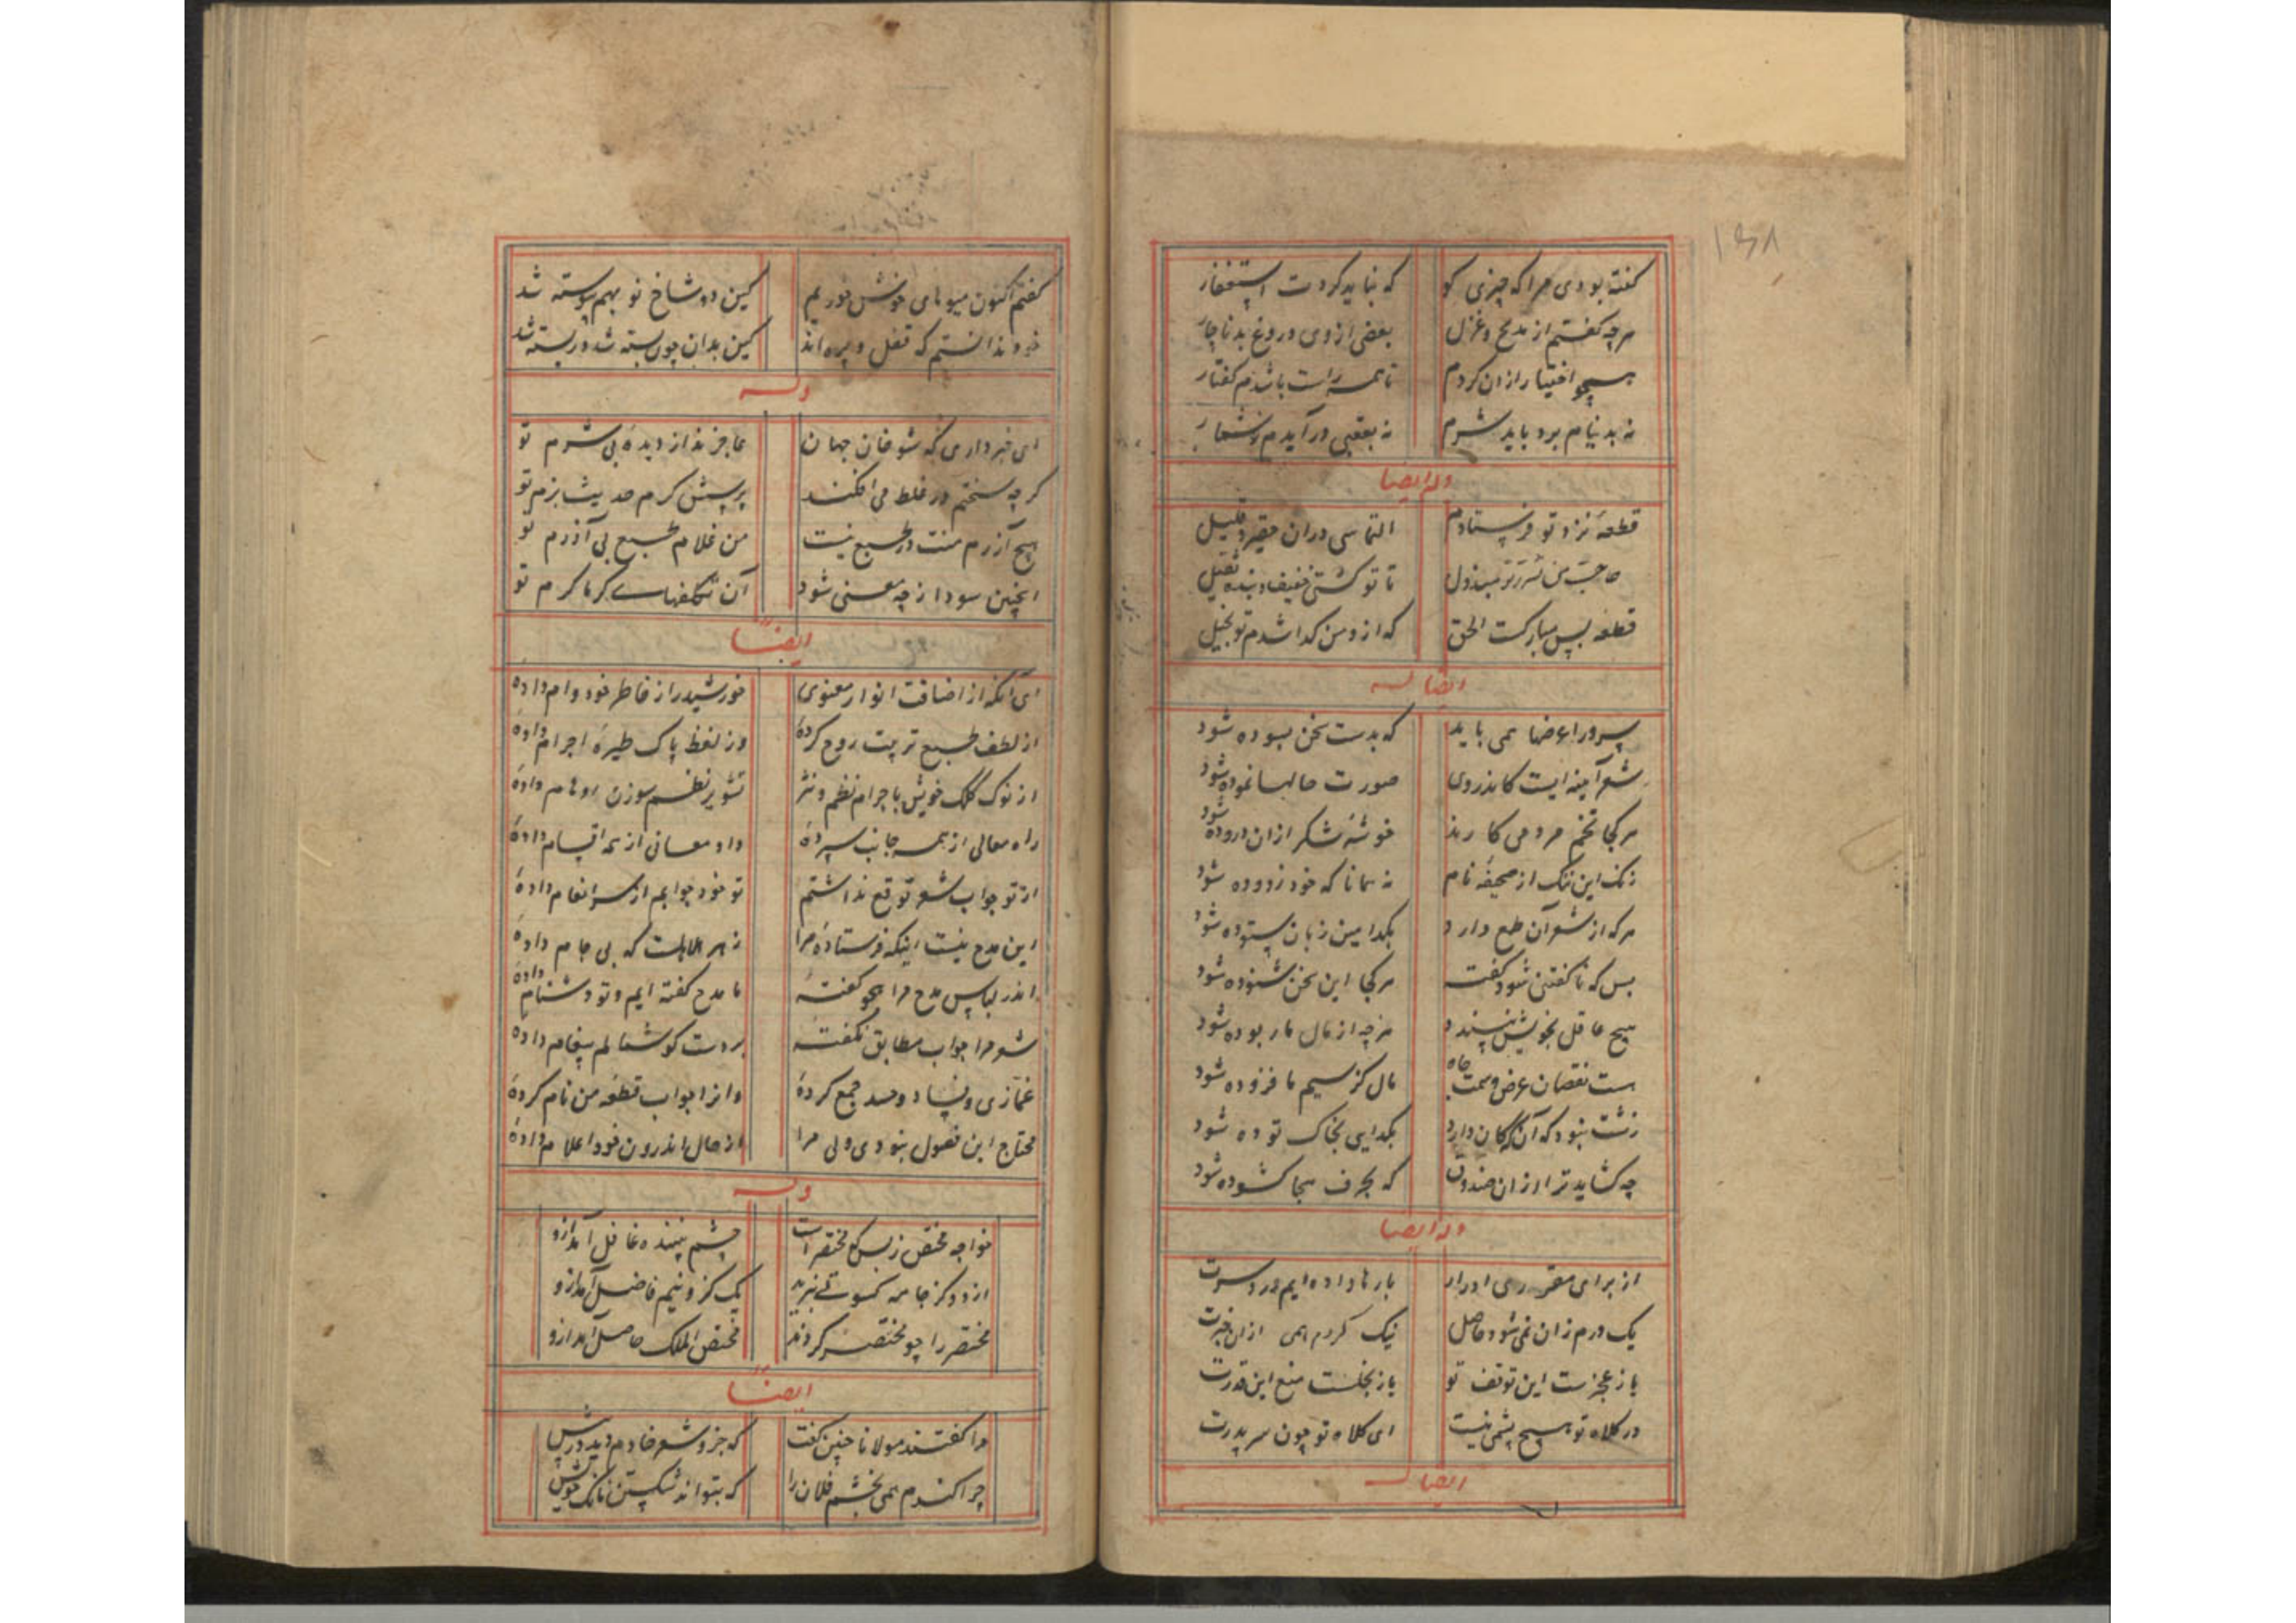 ۱۳۸
گفته بودی مرا که چیزی گو که نباید کردت استغفار
هرچه گفتم از مدیح و غزل بعضی از وی دروغ بد ناچار
هجو اختیار از آن کردم تا همه راست باشدم گفتار
نه بدنیام برد باید شرم نه بعقبی درآیدم
وله ایضا
قطعهٔ نزد تو فرستادم التماسی دران حقیر و قلیل
حاجت من مبذول تا تو گشتی خفیف و بنده ثقیل
قطعه بس مبارکست الحق که ازو من گدا شدم تو بخیل
ایضا له
سرورا عضها همی باید که بدست سخن بسوده شود
شعر آینه ایست کاندروی صورت حالها نموده شود
هرکجا تخم مردمی کارند خوشهٔ شکر ازان دروده شود
زنگ این ننگ از صحیفهٔ نام نه همانا که خود زدوده شود
هرکه از شعر آن طمع دارد بکدامین زبان ستوده شود
بس که ناگفتنی شود گفته هرکجا این سخن شنوده شود
هیچ عاقل بخویش نپسندد هرچه از مال ما ربوده شود
هست نقصان عرض و سمت جاه مال کز سیم ما فزوده شود
زشت نبود که آن که کان دارد بگدایی بخاک توده شود
چه گشاید ترا ازان صندوق که بحرف هجا گشوده شود
وله ایضا
از برای مقرری ادرار بارها داده ایم دردسرت
یک درم زان نمی شود حاصل نیک کردم همی ازان خبرت
یا ز عجزست این توقف تو یا ز بخلست منع این قدرت
در کلاه تو هیچ پشمی نیست ای کلاه تو چون سر پدرت
ایضا له
گفتم اکنون میوهای خوش خوریم کین دو شاخ نو بهم پیوسته شد
خود ندانستم که قفل و پره اند کین بدان چون بسته شد در بسته شد
وله
ای خبر داری که شوخان جهان عاجزند از دیدهٔ بی شرم تو
گرچه سختم در غلط می افکند پرسش گرم حدیث نرم تو
هیچ آزرم منت در طبع نیست من غلام طبع بی آزرم تو
اینچنین سودا ز چه معنی شود آن تکلفهای گرماگرم تو
ایضاً
ای آنکه از اضافت انوار معنوی خورشید را ز خاطر خود وام دادهٔ
از لطف طبع تربیت روح کردهٔ وز لفظ پاک طیرهٔ اجرام دادهٔ
از نوک کلک خویش باجرام نظم و نثر تشویر نظم سوزن اوهام دادهٔ
راه معالی از همه جانب سپردهٔ داد معانی از همه اقسام دادهٔ
از تو جواب شعر توقع نداشتم تو خود جوابم از سر انعام دادهٔ
این مدح نیست اینکه فرستادهٔ مرا زهر هلاهلست که بی جام دادهٔ
اندر لباس مدح مرا هجو گفتهٔ ما مدح گفته ایم و تو دشنام دادهٔ
شعر مرا جواب مطابق نگفتهٔ بر دست گوشمالم پیغام دادهٔ
غمازی و فساد و حسد جمع کردهٔ وانرا جواب قطعهٔ من نام کردهٔ
محتاج این فضول نبودی ولی مرا از حال اندرون خود اعلام دادهٔ
وله
خواجه مختص ز بس که مختصر است چشم بیننده غافل آمد ازو
از دو گز جامه کسوتی ببرید یک گز و نیم فاضل آمد ازو
مختصر را چو مختصر کردند مختص الملک حاصل آمد ازو
ایضاً
مرا گفتند مولانا چنین گفت که جز و شعر خادم دید درپیش
چرا گندم همی بخشم فلان را که بتواند شکستن نانک خویش